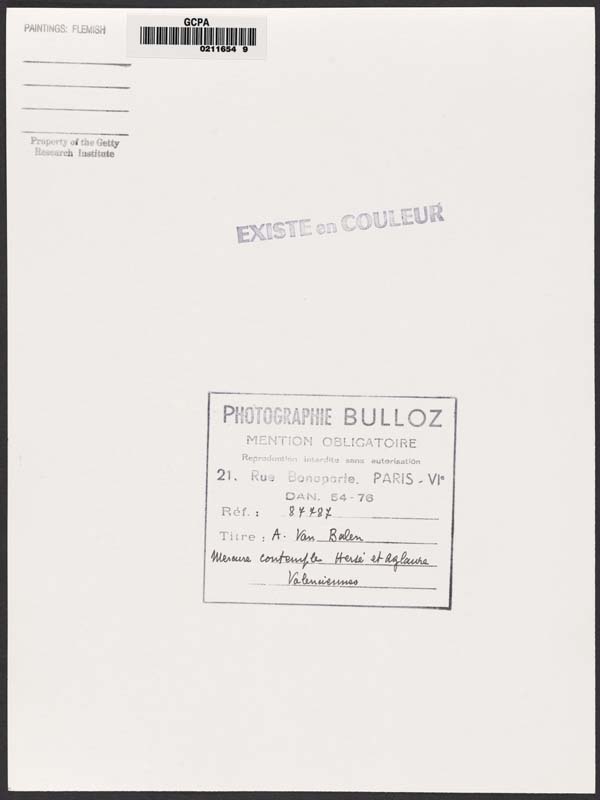 PAINTINGS: FLEMISH
GCPA
0211654 9
Property of the Getty
Research Institute
EXISTE en COULEUR
PHOTOGRAPHIE BULLOZ
MENTION OBLIGATOIRE
Reproduction interdite sans autorisation
21, Rue Bonaparte, PARIS - VIe
DAN. 54-76
Réf. :
Titre : A. Van Balen
Mercure contemple Hersé et Aglaure
Valenciennes